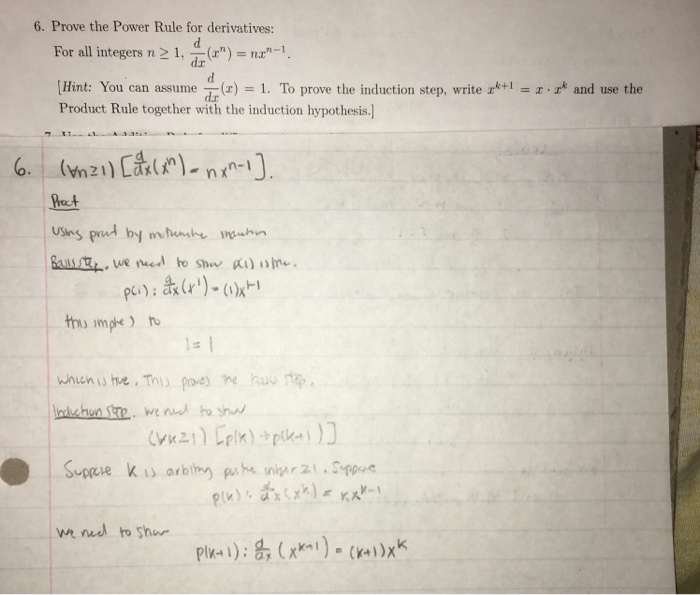 6. Prove the Power Rule for derivatives:
For all integers n ≥ 1, d/dx (xⁿ) = nxⁿ⁻¹.
[Hint: You can assume d/dx (x) = 1. To prove the induction step, write xᵏ⁺¹ = x · xᵏ and use the
Product Rule together with the induction hypothesis.]
6. (∀n≥1) [d/dx(xⁿ) = nxⁿ⁻¹].
Proof
Using proof by induction
Basis step. we need to show p(1) is true.
p(1): d/dx(x¹) = (1)x¹⁻¹
this to
1 = 1
which is true. This proves the basis step.
Induction step. we need to show
(∀k≥1) [p(k) → p(k+1)]
Suppose k is arbitrary integer ≥1. Suppose
p(k): d/dx(xᵏ) = kxᵏ⁻¹
we need to show
p(k+1): d/dx (xᵏ⁺¹) = (k+1)xᵏ